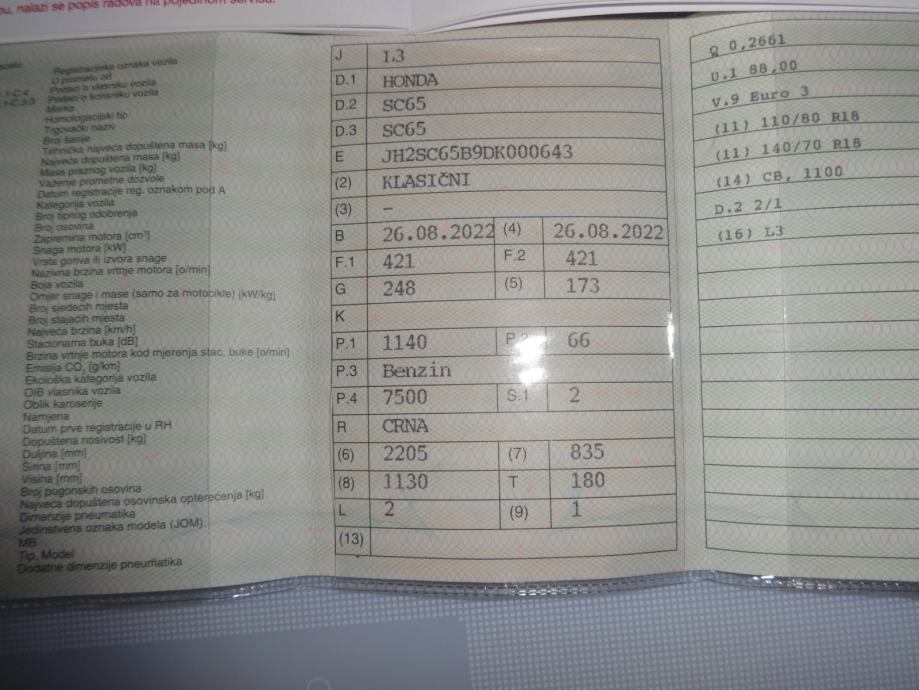 nalazi se popis radova na pojedinom servisu.
Registracijska oznaka vozila
U prometu od
Podaci o vlasniku vozila
Podaci o korisniku vozila
Marka
Homologacijski tip
Trgovački naziv
Broj šasije
Tehnička najveća dopuštena masa [kg]
Najveća dopuštena masa [kg]
Masa praznog vozila [kg]
Važenje prometne dozvole
Datum registracije reg. oznakom pod A
Kategorija vozila
Broj tipnog odobrenja
Broj osovina
Zapremina motora [cm³]
Snaga motora [kW]
Vrsta goriva ili izvora snage
Nazivna brzina vrtnje motora [o/min]
Boja vozila
Omjer snage i mase (samo za motocikle) [kW/kg]
Broj sjedećih mjesta
Broj stajaćih mjesta
Najveća brzina [km/h]
Stacionarna buka [dB]
Brzina vrtnje motora kod mjerenja stac. buke [o/min]
Emisija CO₂ [g/km]
Ekološka kategorija vozila
OIB vlasnika vozila
Oblik karoserije
Namjena
Datum prve registracije u RH
Dopuštena nosivost [kg]
Duljina [mm]
Širina [mm]
Visina [mm]
Broj pogonskih osovina
Najveća dopuštena osovinska opterećenja [kg]
Dimenzije pneumatika
Jedinstvena oznaka modela (JOM)
MB
Tip, Model
Dodatne dimenzije pneumatika
J L3
D.1 HONDA
D.2 SC65
D.3 SC65
E JH2SC65B9DK000643
(2) KLASIČNI
(3) –
B 26.08.2022 (4) 26.08.2022
F.1 421 F.2 421
G 248 (5) 173
K
P.1 1140 P.2 66
P.3 Benzin
P.4 7500 S.1 2
R CRNA
(6) 2205 (7) 835
(8) 1130 T 180
L 2 (9) 1
(13)
Q 0,2661
U.1 88,00
V.9 Euro 3
(11) 110/80 R18
(11) 140/70 R18
(14) CB, 1100
D.2 2/1
(16) L3